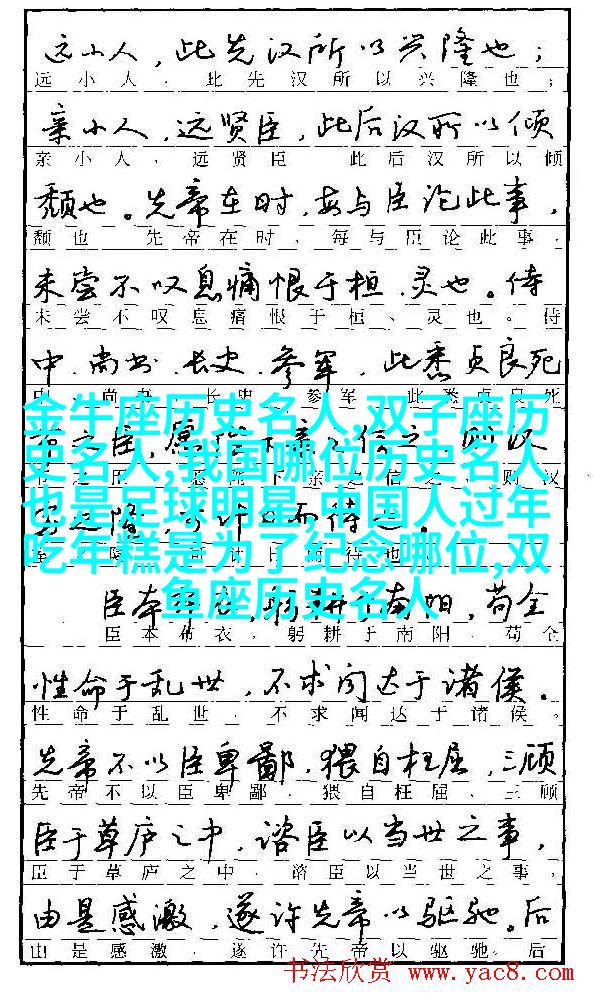 远小人，此先汉所以兴隆也；
远小人，此先汉所以兴隆也；
亲小人，远贤臣，此后汉所以倾
亲小人，远贤臣 此后汉所以倾
颓也。先帝在时，每与臣论此事，
颓也 先帝在时，每与臣论此事，
未尝不叹息痛恨于桓、灵也。侍
未尝不叹息痛恨于桓、灵也。侍
中、尚书、长史、参军，此悉贞良死
参军 此悉贞良死
金牛座历史名人,双子座历
史名人,我国哪位历史名人
也是足球明星,中国人过年
吃年糕是为了纪念哪位,双
鱼座历史名人
之臣 信之 则汉
之臣 亲之信之 则汉
之隆，可计日而待也。
臣本布衣，躬耕于南阳，苟全
臣本布衣，躬耕于南阳，苟全
性命于乱世，不求闻达于诸侯。
性命于乱世，不求闻达于诸侯。
先帝不以臣卑鄙，猥自枉屈，三顾
先帝不以臣卑鄙，猥自枉屈，三顾
臣于草庐之中，谘臣以当世之事，
臣于草庐之中，谘臣以当世之事，
由是感激，遂许先帝以驱驰。后
由是感激，遂许先帝以驱驰。后
书法欣赏 www.yac8.com